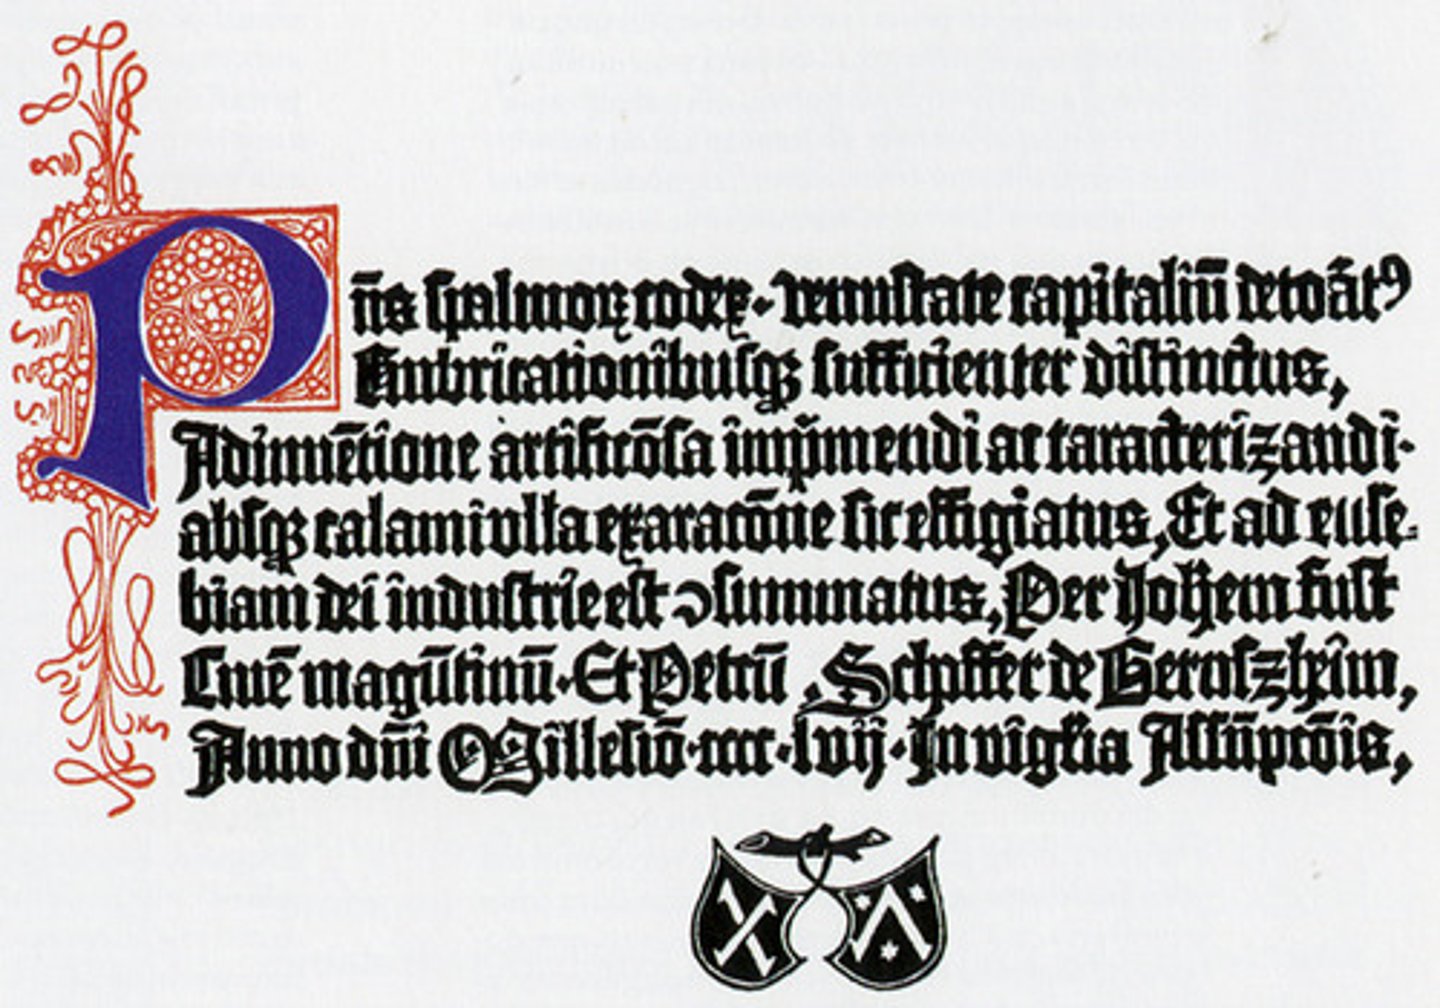 Pñs spalmoꝝ codex. venustate capitaliū decoāt⁹
Rubricationibusqꝫ sufficienter distinctus,
Adinuētione artificōsa imp̄mendi ac caracterizandi.
absqꝫ calami vlla exaracōne sic effigiatus, Et ad euse-
biam dei industrie est ↄsummatus, Per Joh̄em fust
Ciuē magūtinū. Et Petrū Schoffer de Gernszheim,
Anno dñi Millesīo. cccc. lvij. In vigīlia Assūpcōis,